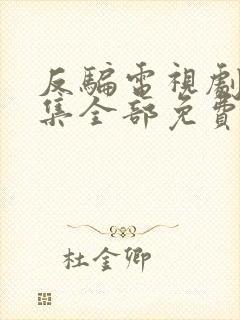 反騙電視劇
集全部免費
杜金卿